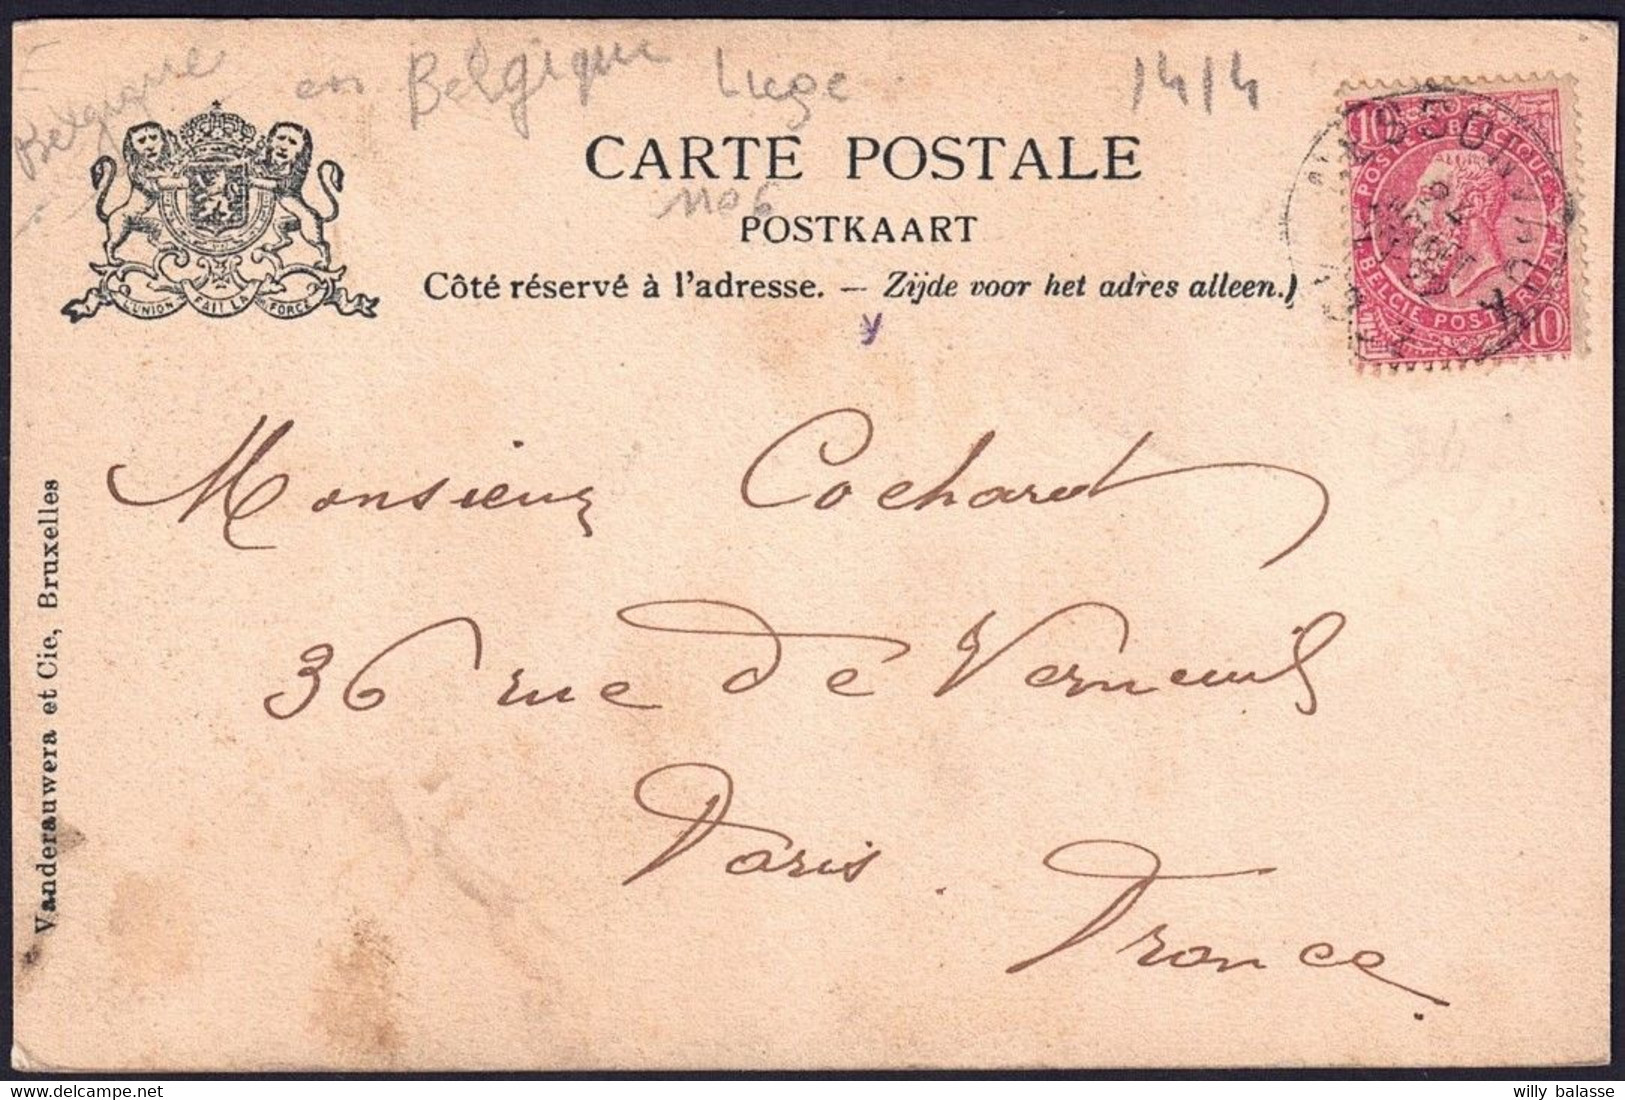 Belgique
en Belgique Liege
1414
CARTE POSTALE
1106
POSTKAART
Côté réservé à l'adresse. — Zijde voor het adres alleen.)
L'UNION FAIT LA FORCE
10 10
POSTES BELGIQUE
BELGIE POSTERIJEN
10
Monsieur Cocharet
36 rue de Verneuil
Paris. France.
Vanderauwera et Cie, Bruxelles
willy balasse